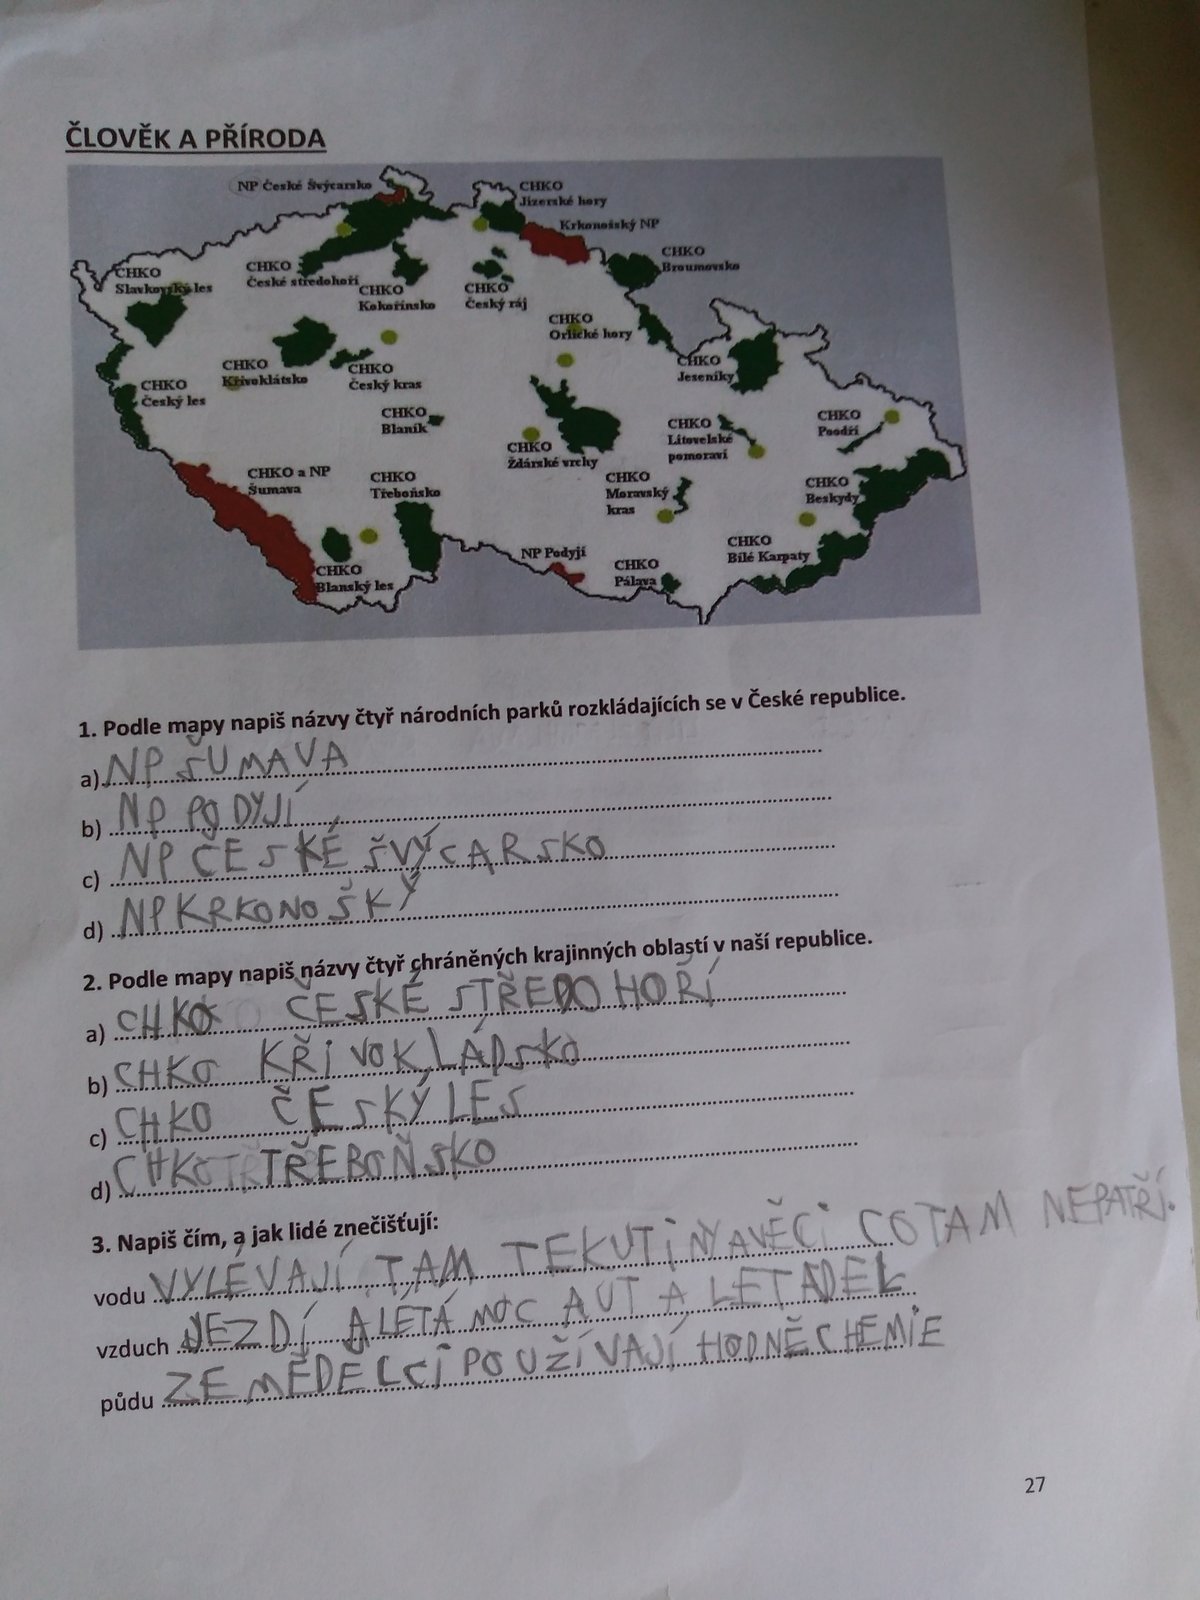 ČLOVĚK A PŘÍRODA
NP České Švýcarsko
CHKO
Jizerské hory
Krkonošský NP
CHKO
Broumovsko
CHKO
Slavkovský les
CHKO
České stredohoří
CHKO
Kokořínsko
CHKO
Český ráj
CHKO
Orlické hory
CHKO
Jeseníky
CHKO
Křivoklátsko
CHKO
Český kras
CHKO
Český les
CHKO
Blaník
CHKO
Žďárské vrchy
CHKO
Litovelské
pomoraví
CHKO
Poodří
CHKO a NP
Šumava
CHKO
Třeboňsko
CHKO
Moravský
kras
CHKO
Beskydy
CHKO
Blanský les
NP Podyjí
CHKO
Pálava
CHKO
Bílé Karpaty
1. Podle mapy napiš názvy čtyř národních parků rozkládajících se v České republice.
a) NP ŠUMAVA
b) NP PODYJÍ
c) NP ČESKÉ ŠVÝCARSKO
d) NP KRKONOŠKÝ
2. Podle mapy napiš názvy čtyř chráněných krajinných oblastí v naší republice.
a) CHKO ČESKÉ STŘEDOHOŘÍ
b) CHKO KŘIVOKLÁDSKO
c) CHKO ČESKÝ LES
d) CHKO TŘEBOŇSKO
3. Napiš čím, a jak lidé znečišťují:
vodu VYLÉVAJÍ TAM TEKUTINY A VĚCI CO TAM NEPATŘÍ.
vzduch JEZDÍ A LÉTÁ MOC AUT A LETADEL
půdu ZEMĚDĚLCI POUŽÍVAJÍ HODNĚ CHEMIE
27